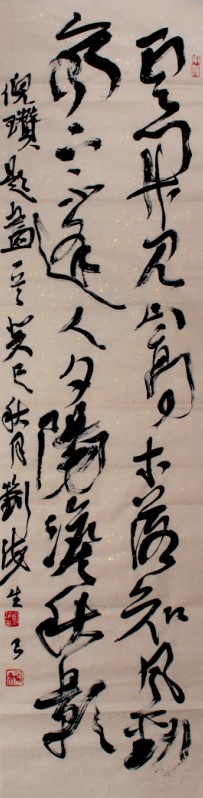 雲開見山高木落知風勁
亭下不逢人夕陽澹秋影
倪瓚題畫一首癸巳秋月劉生